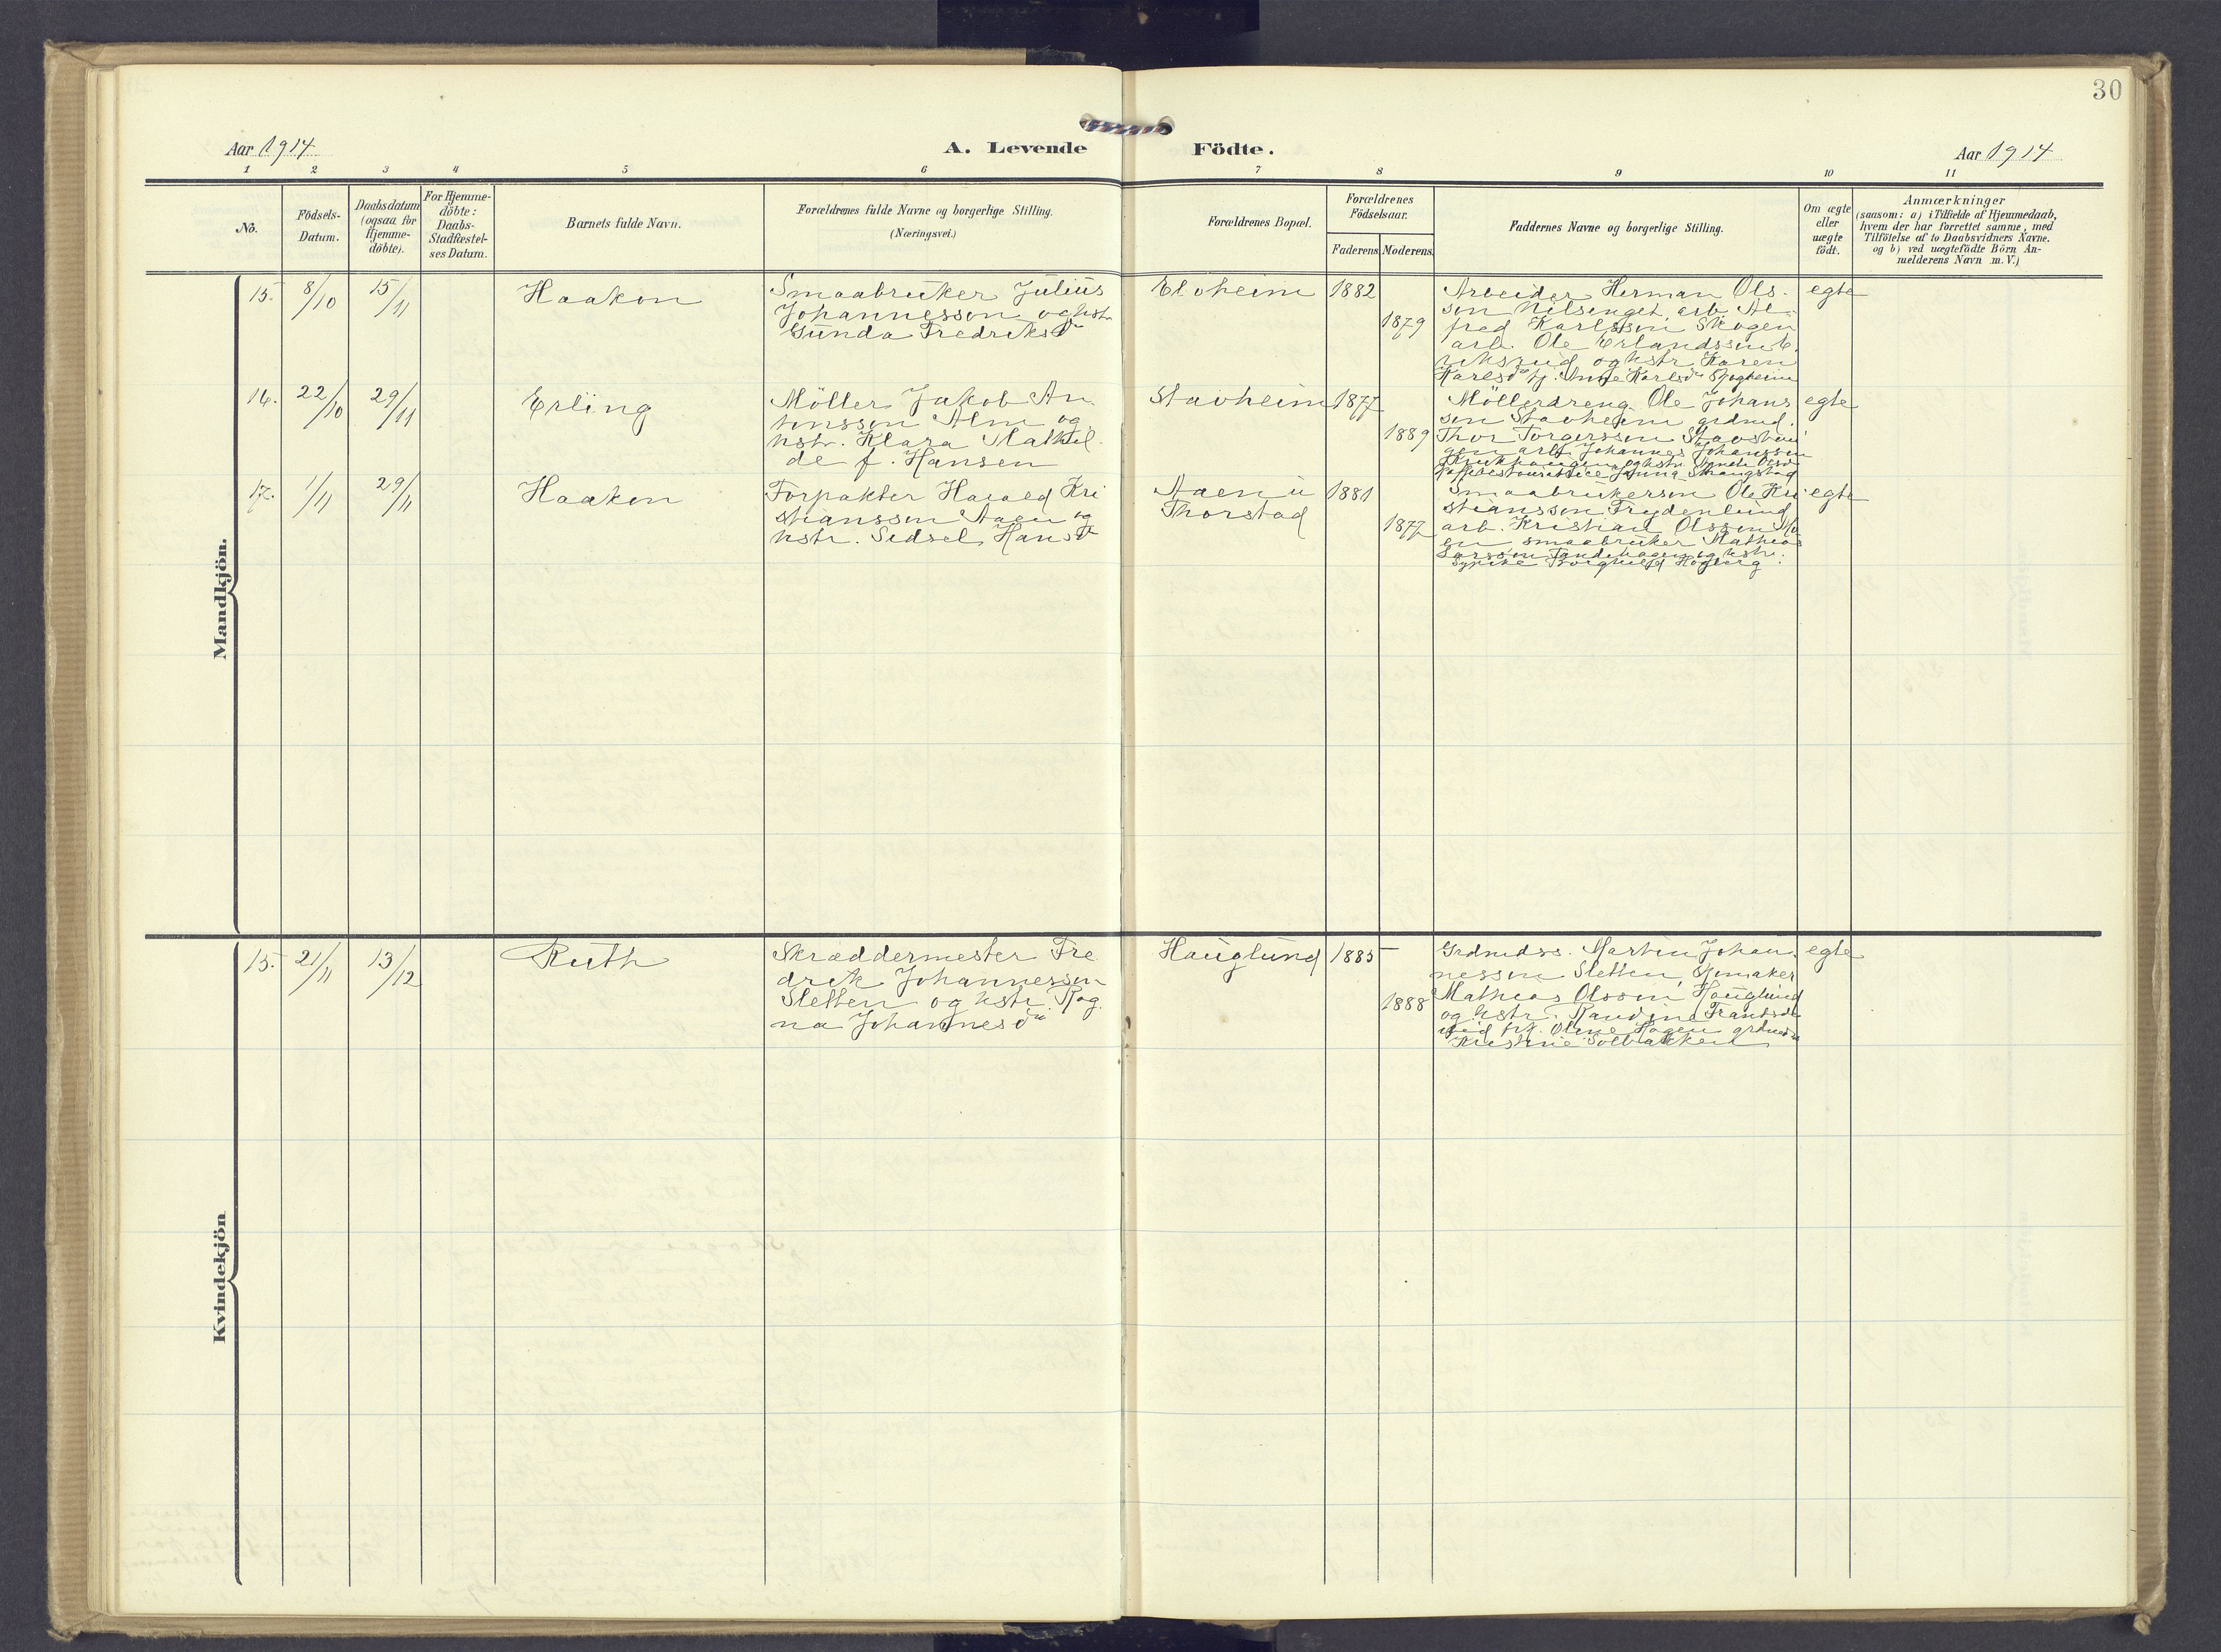 30
Aar 1914
A. Levende Födte.
Aar 1914
1 2 3 4 5 6 7 8 9 10 11
No.
Födsels-
Datum.
Daabsdatum
(ogsaa for
Hjemme-
döbte).
For Hjemme-
döbte:
Daabs-
Stadfæstel-
ses Datum.
Barnets fulde Navn.
Forældrenes fulde Navne og borgerlige Stilling.
(Næringsvei.)
Forældrenes Bopæl.
Forældrenes
Födselsaar.
Faderens Moderens
Faddernes Navne og borgerlige Stilling.
Om ægte
eller
uægte
födt.
Anmærkninger
(saasom: a) i Tilfælde af Hjemmedaab,
hvem der har forrettet samme, med
Tilföielse af to Daabsvidners Navne,
og b) ved uægtefödte Börn An-
melderens Navn m. V.)
Mandkjön.
15. 8/10 15/11
Haakon
Smaabruker Julius
Johannesson og hstr
Gunda Fredriksdr
Elvheim
1882
1879
Arbeider Herman Ols-
son Nilsenget, arb. Al-
fred Karlsson Skogen
arb. Ole Erlandsson
og hstr. Karen
Karlsdr tj. Karlsdr
egte
16. 22/10 29/11
Erling
Möller Jakob An
tonsson Alm og
hstr. Klara Mathil
de f. Hansen
Stavheim
1877
1889
Möllerdreng Ole Johans
son Stavheim grdmd.
Thor Torgersson
arb. Johannes Johansson
og hstr.
egte
17. 1/11 29/11
Haakon
Forpakter Harald Kri
stiansson Aaen og
hstr. Sidsel Hansdr
Aaen u
Thorstad
1881
1877
Smaabrukerson Ole Kri
stiansson Frydenlund
arb. Kristian Olsson Mo
en smaabruker Mathias
Larsson og hstr.
Syerske Borghild Hogberg.
egte
Kvindekjön
15. 21/11 13/12
Ruth
Skræddermester Fre
drik Johannesson
Sletten og hstr. Rag
na Johannesdr
Hauglund
1885
1888
Grdmdss. Martin Johan
nesson Sletten, Skomaker
Mathias Olsson Hauglund
og hstr. Randine Frantsdr
Oline Hagen
Kristine Solbakken
egte